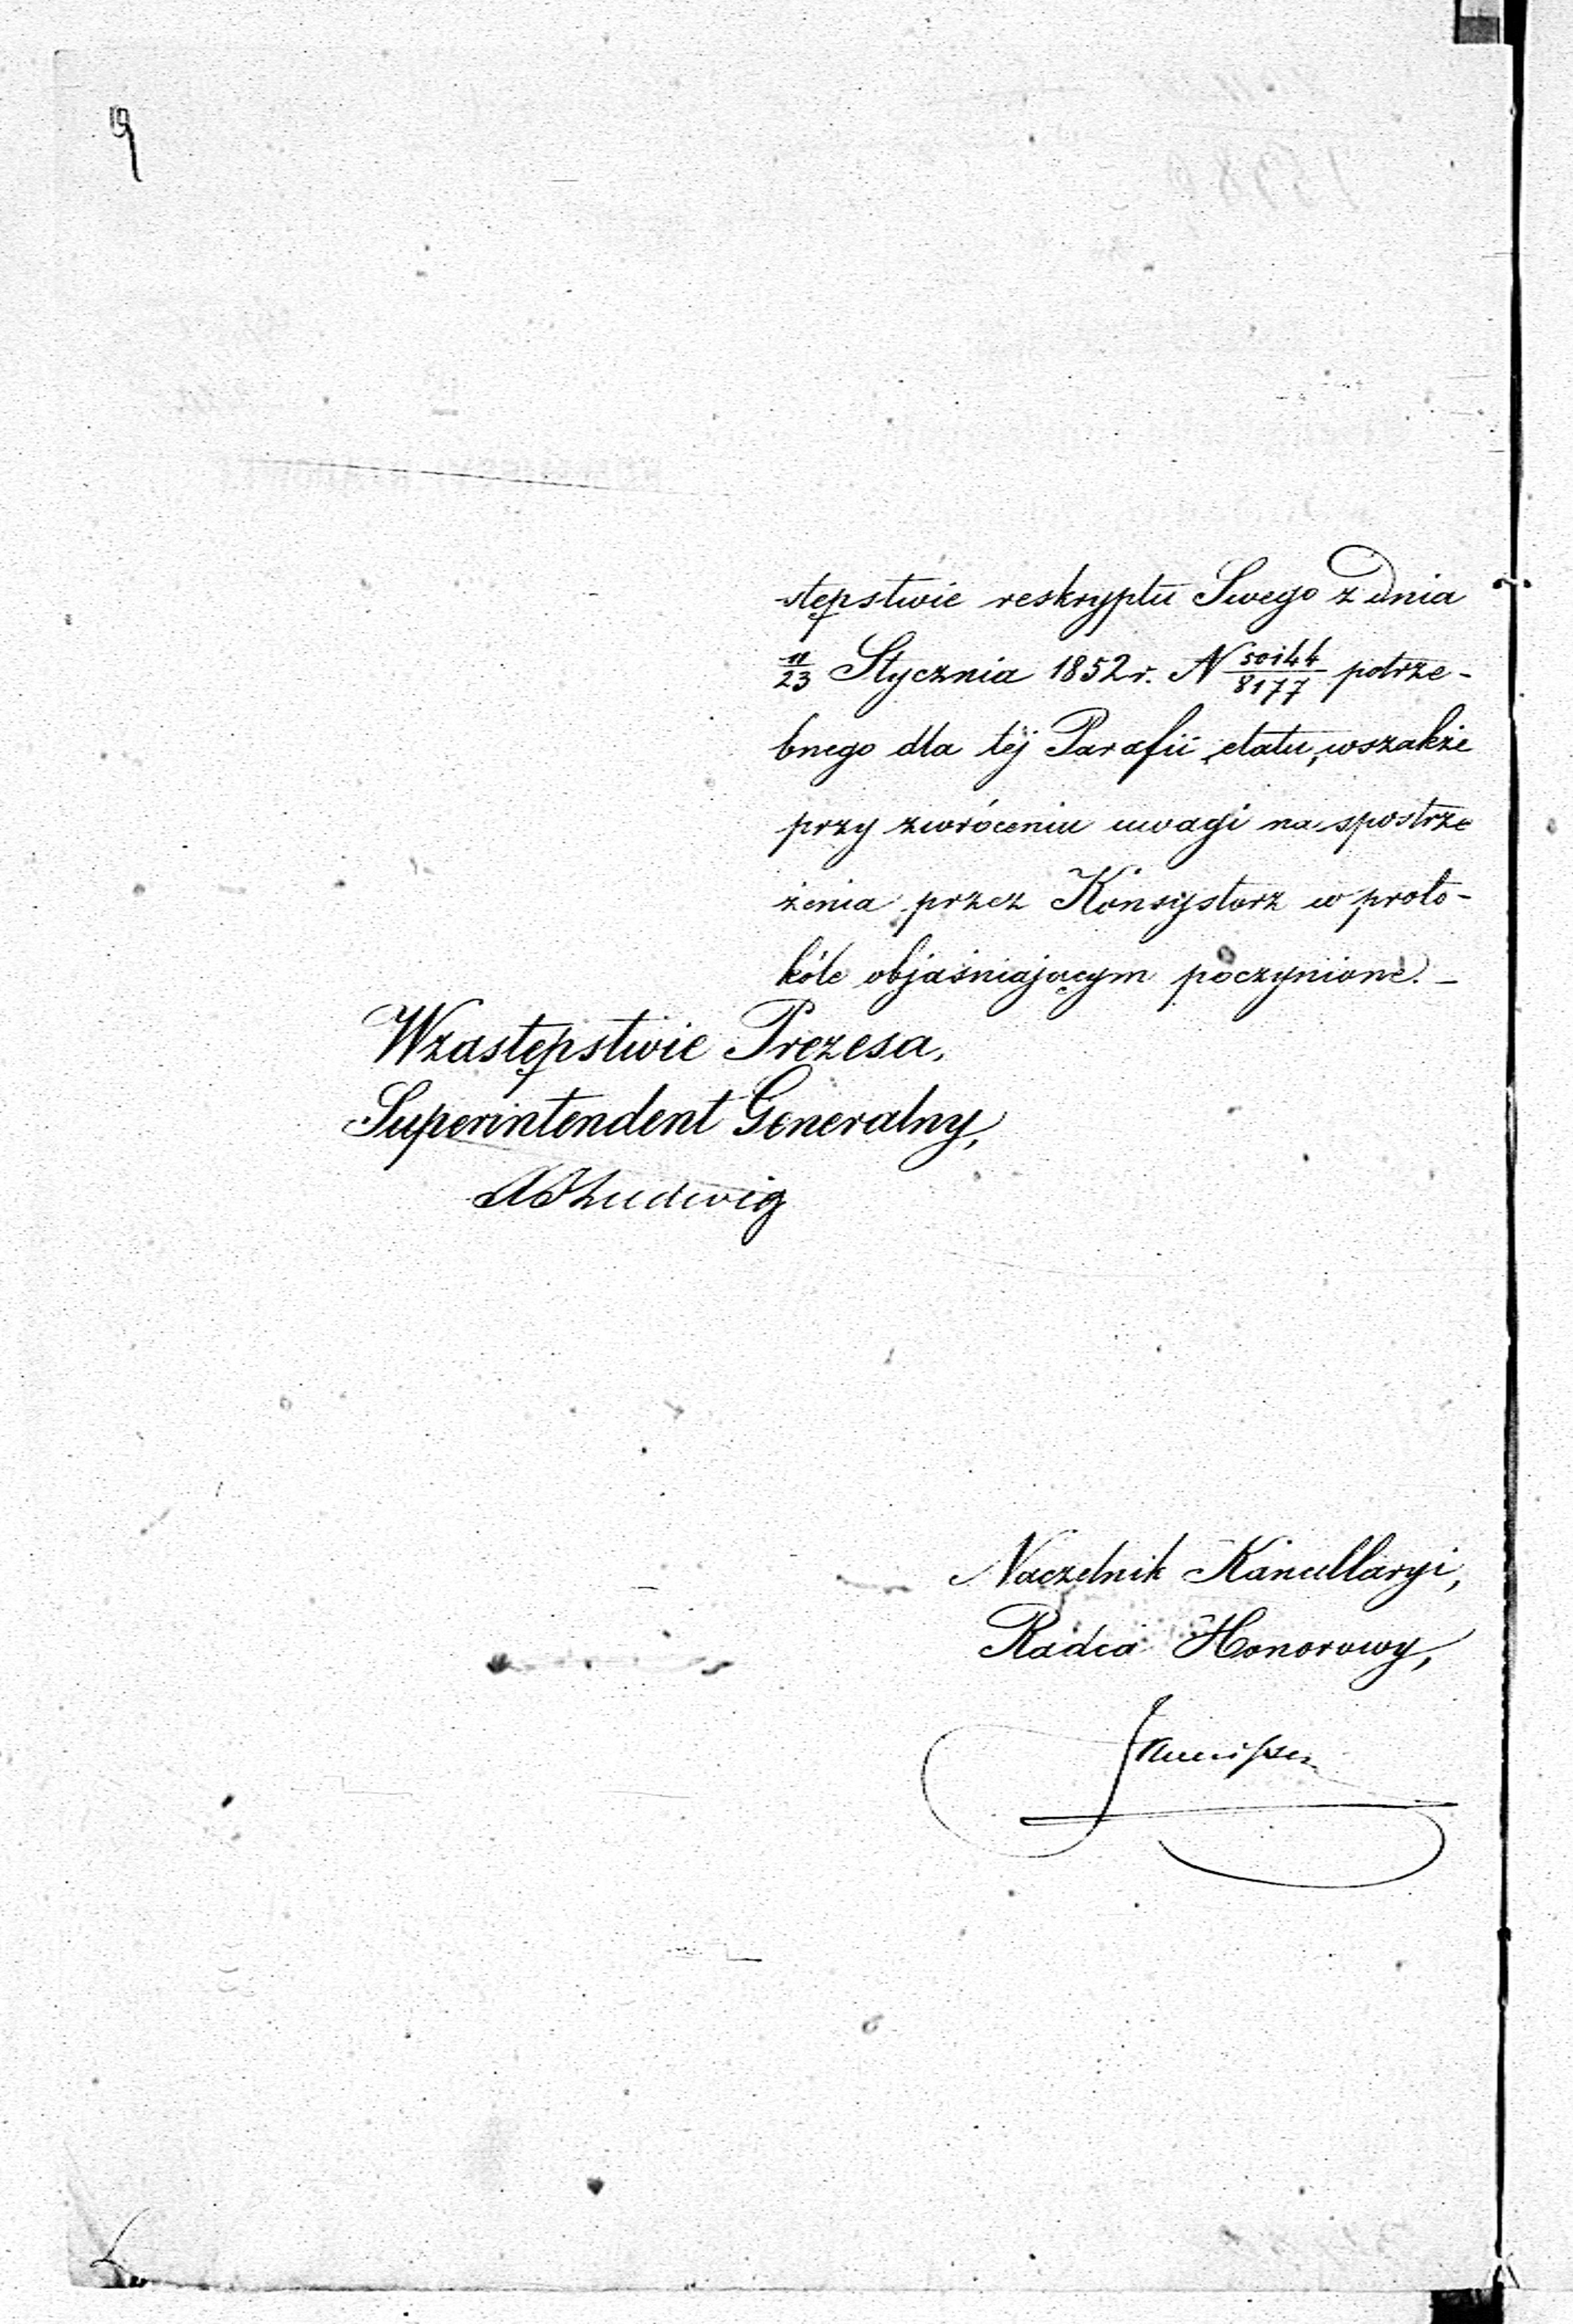 stępstwie reskryptu Swego z dnia
11/23 Stycznia 1852 r. N 50144/8177 potrze-
bnego dla tej Parafii etatu, wszakże
przy zwróceniu uwagi na spostrze
żenia przez Konsystorz w proto-
kóle objaśniającym poczynione. _
W zastępstwie Prezesa,
Superintendent Generalny,
Ludwig
Naczelnik Kancellaryi,
Radca Honorowy,